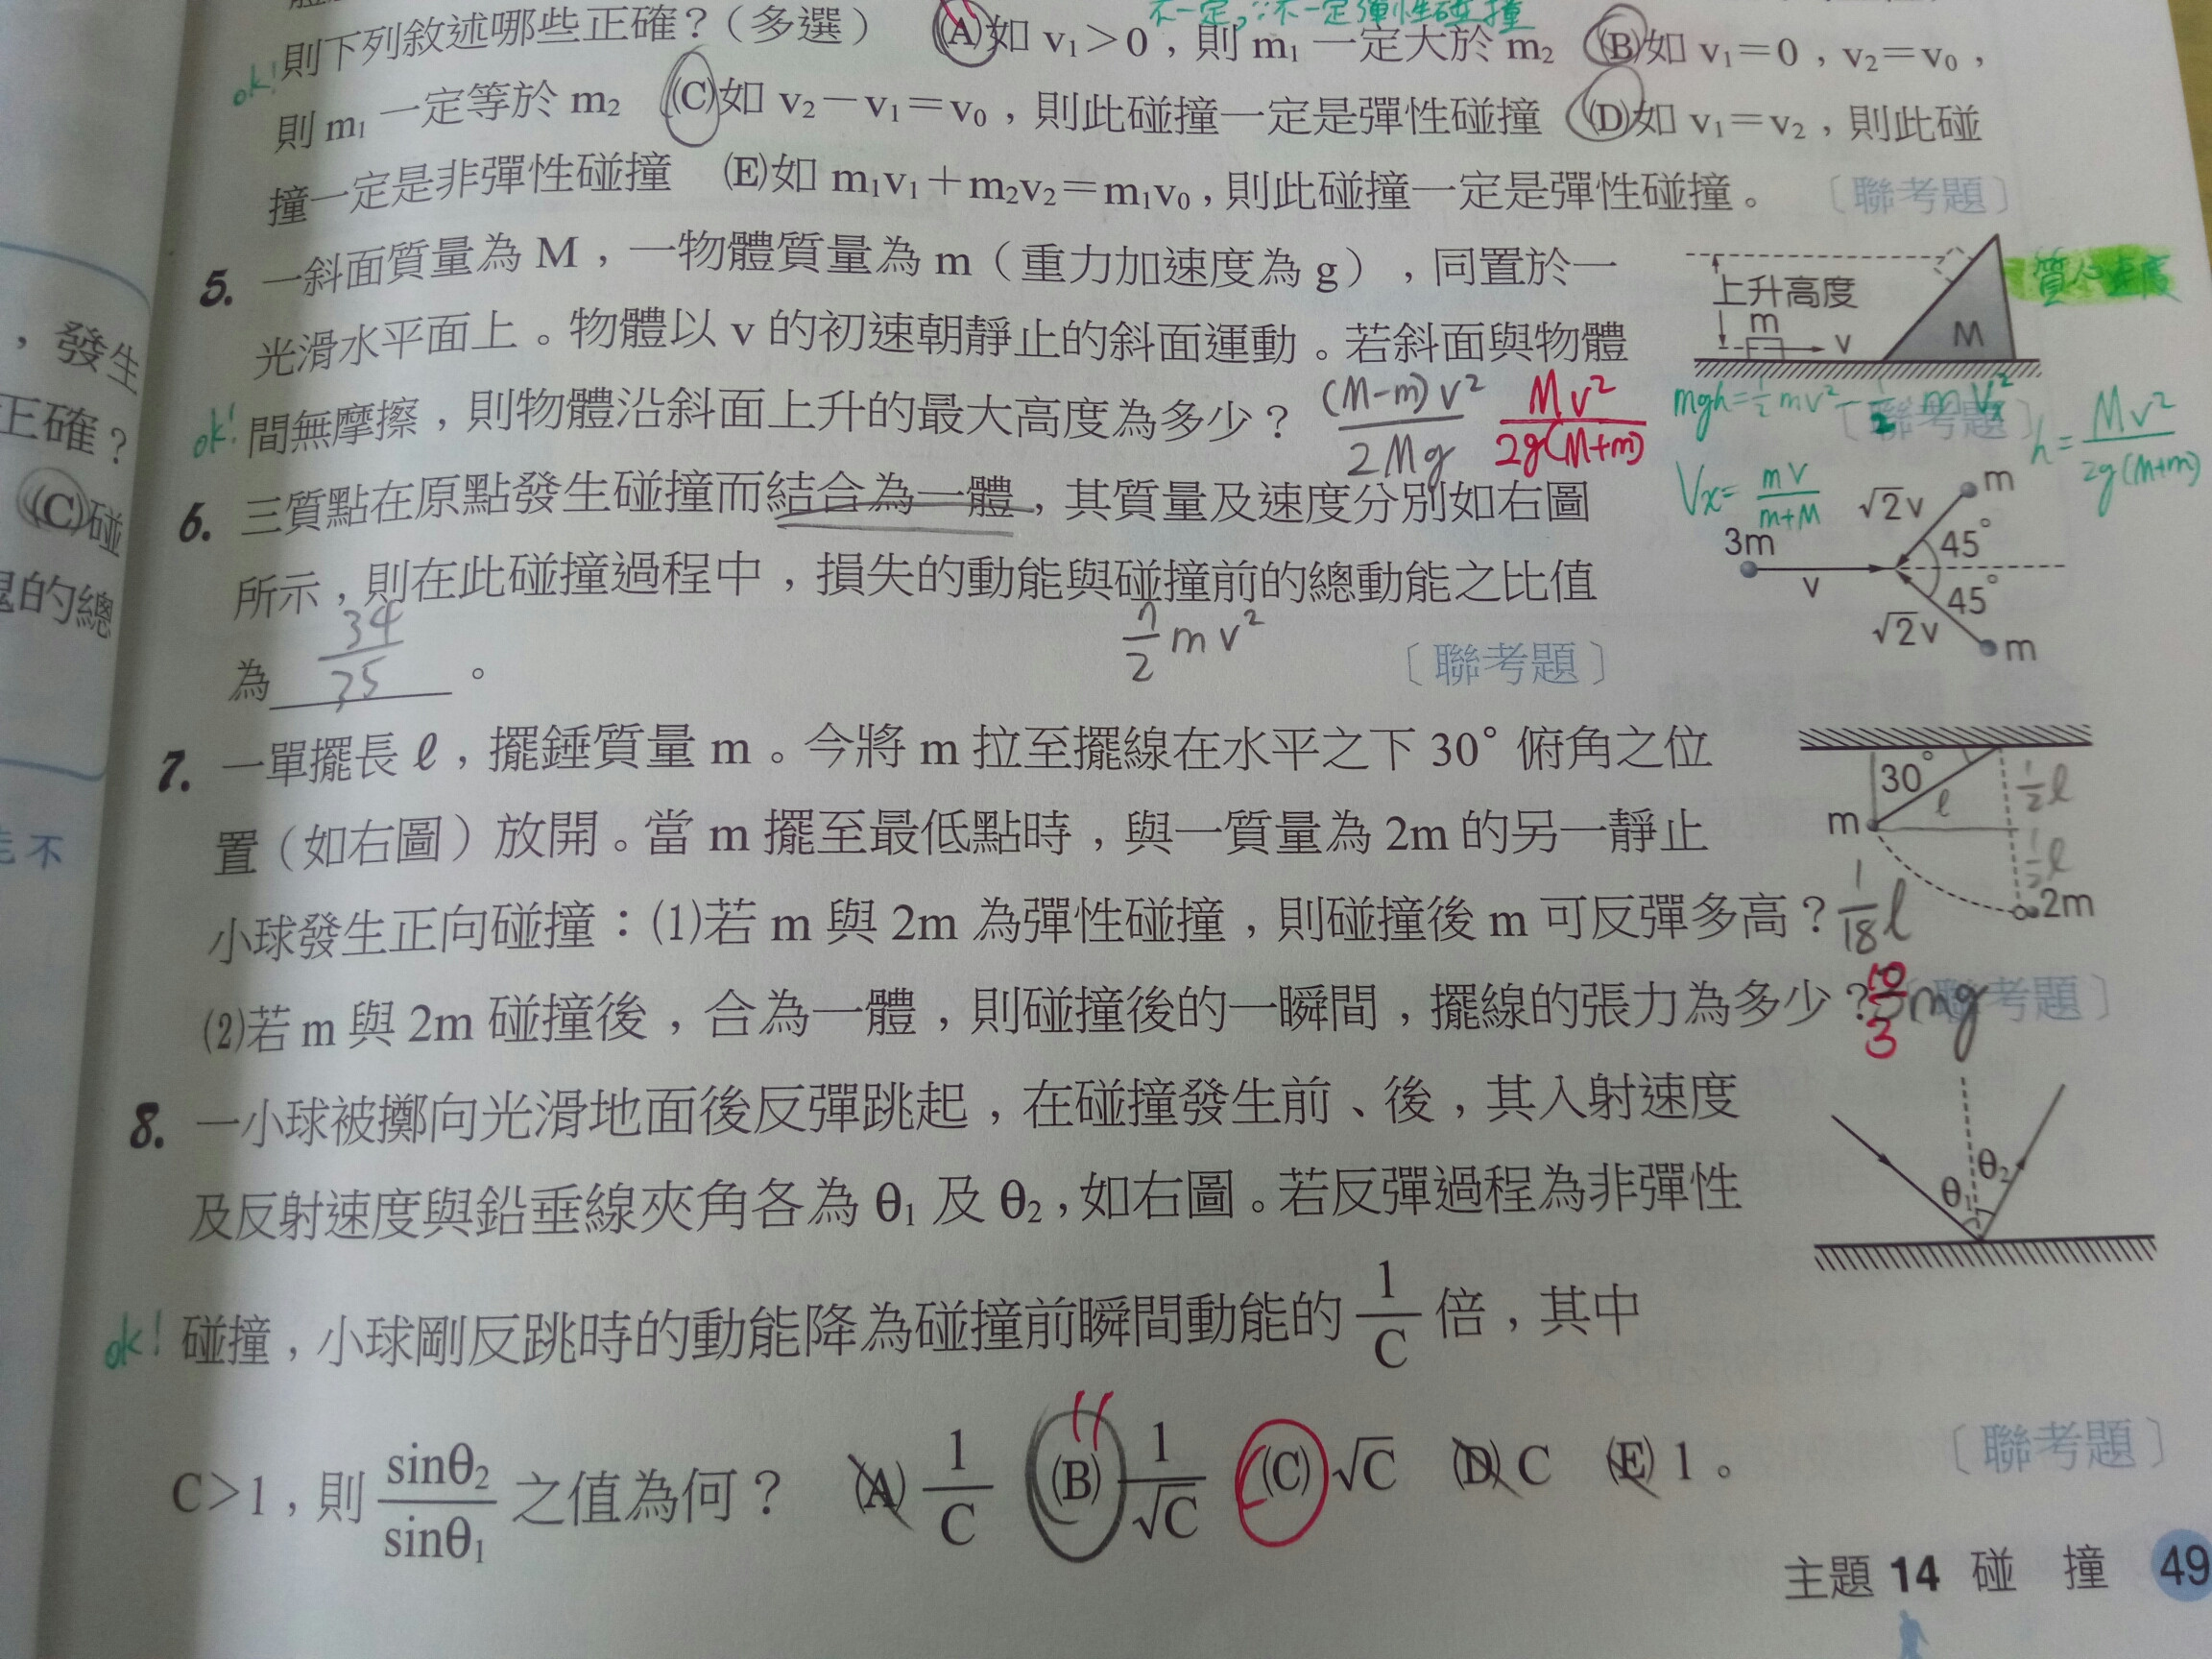 不一定,∵不一定彈性碰撞
ok! 則下列敘述哪些正確？（多選） (A)如 v₁＞0，則 m₁ 一定大於 m₂ (B)如 v₁＝0，v₂＝v₀，
則 m₁ 一定等於 m₂ (C)如 v₂－v₁＝v₀，則此碰撞一定是彈性碰撞 (D)如 v₁＝v₂，則此碰
撞一定是非彈性碰撞 (E)如 m₁v₁＋m₂v₂＝m₁v₀，則此碰撞一定是彈性碰撞。〔聯考題〕
5. 一斜面質量為 M，一物體質量為 m（重力加速度為 g），同置於一
光滑水平面上。物體以 v 的初速朝靜止的斜面運動。若斜面與物體
ok! 間無摩擦，則物體沿斜面上升的最大高度為多少？ (M-m)v²/2Mg Mv²/2g(M+m) 〔聯考題〕
上升高度
m
v
M
質心速度
h=Mv²/2g(M+m)
Vx=mV/m+M
6. 三質點在原點發生碰撞而結合為一體，其質量及速度分別如右圖
所示，則在此碰撞過程中，損失的動能與碰撞前的總動能之比值
為 34/35 。 〔聯考題〕
√2v
m
3m
45°
v
45°
√2v
m
7. 一單擺長 ℓ，擺錘質量 m。今將 m 拉至擺線在水平之下 30° 俯角之位
置（如右圖）放開。當 m 擺至最低點時，與一質量為 2m 的另一靜止
小球發生正向碰撞：(1)若 m 與 2m 為彈性碰撞，則碰撞後 m 可反彈多高？ 1/18 ℓ
(2)若 m 與 2m 碰撞後，合為一體，則碰撞後的一瞬間，擺線的張力為多少？ 10/3 mg 〔聯考題〕
30°
ℓ
½ℓ
m
½ℓ
2m
8. 一小球被擲向光滑地面後反彈跳起，在碰撞發生前、後，其入射速度
及反射速度與鉛垂線夾角各為 θ₁ 及 θ₂，如右圖。若反彈過程為非彈性
ok! 碰撞，小球剛反跳時的動能降為碰撞前瞬間動能的 1/C 倍，其中
C＞1，則 sinθ₂/sinθ₁ 之值為何？ (A) 1/C (B) 1/√C (C) √C (D) C (E) 1。 〔聯考題〕
θ₁
θ₂
主題 14 碰 撞 49
，發生
正確？
(C)碰
的總
不